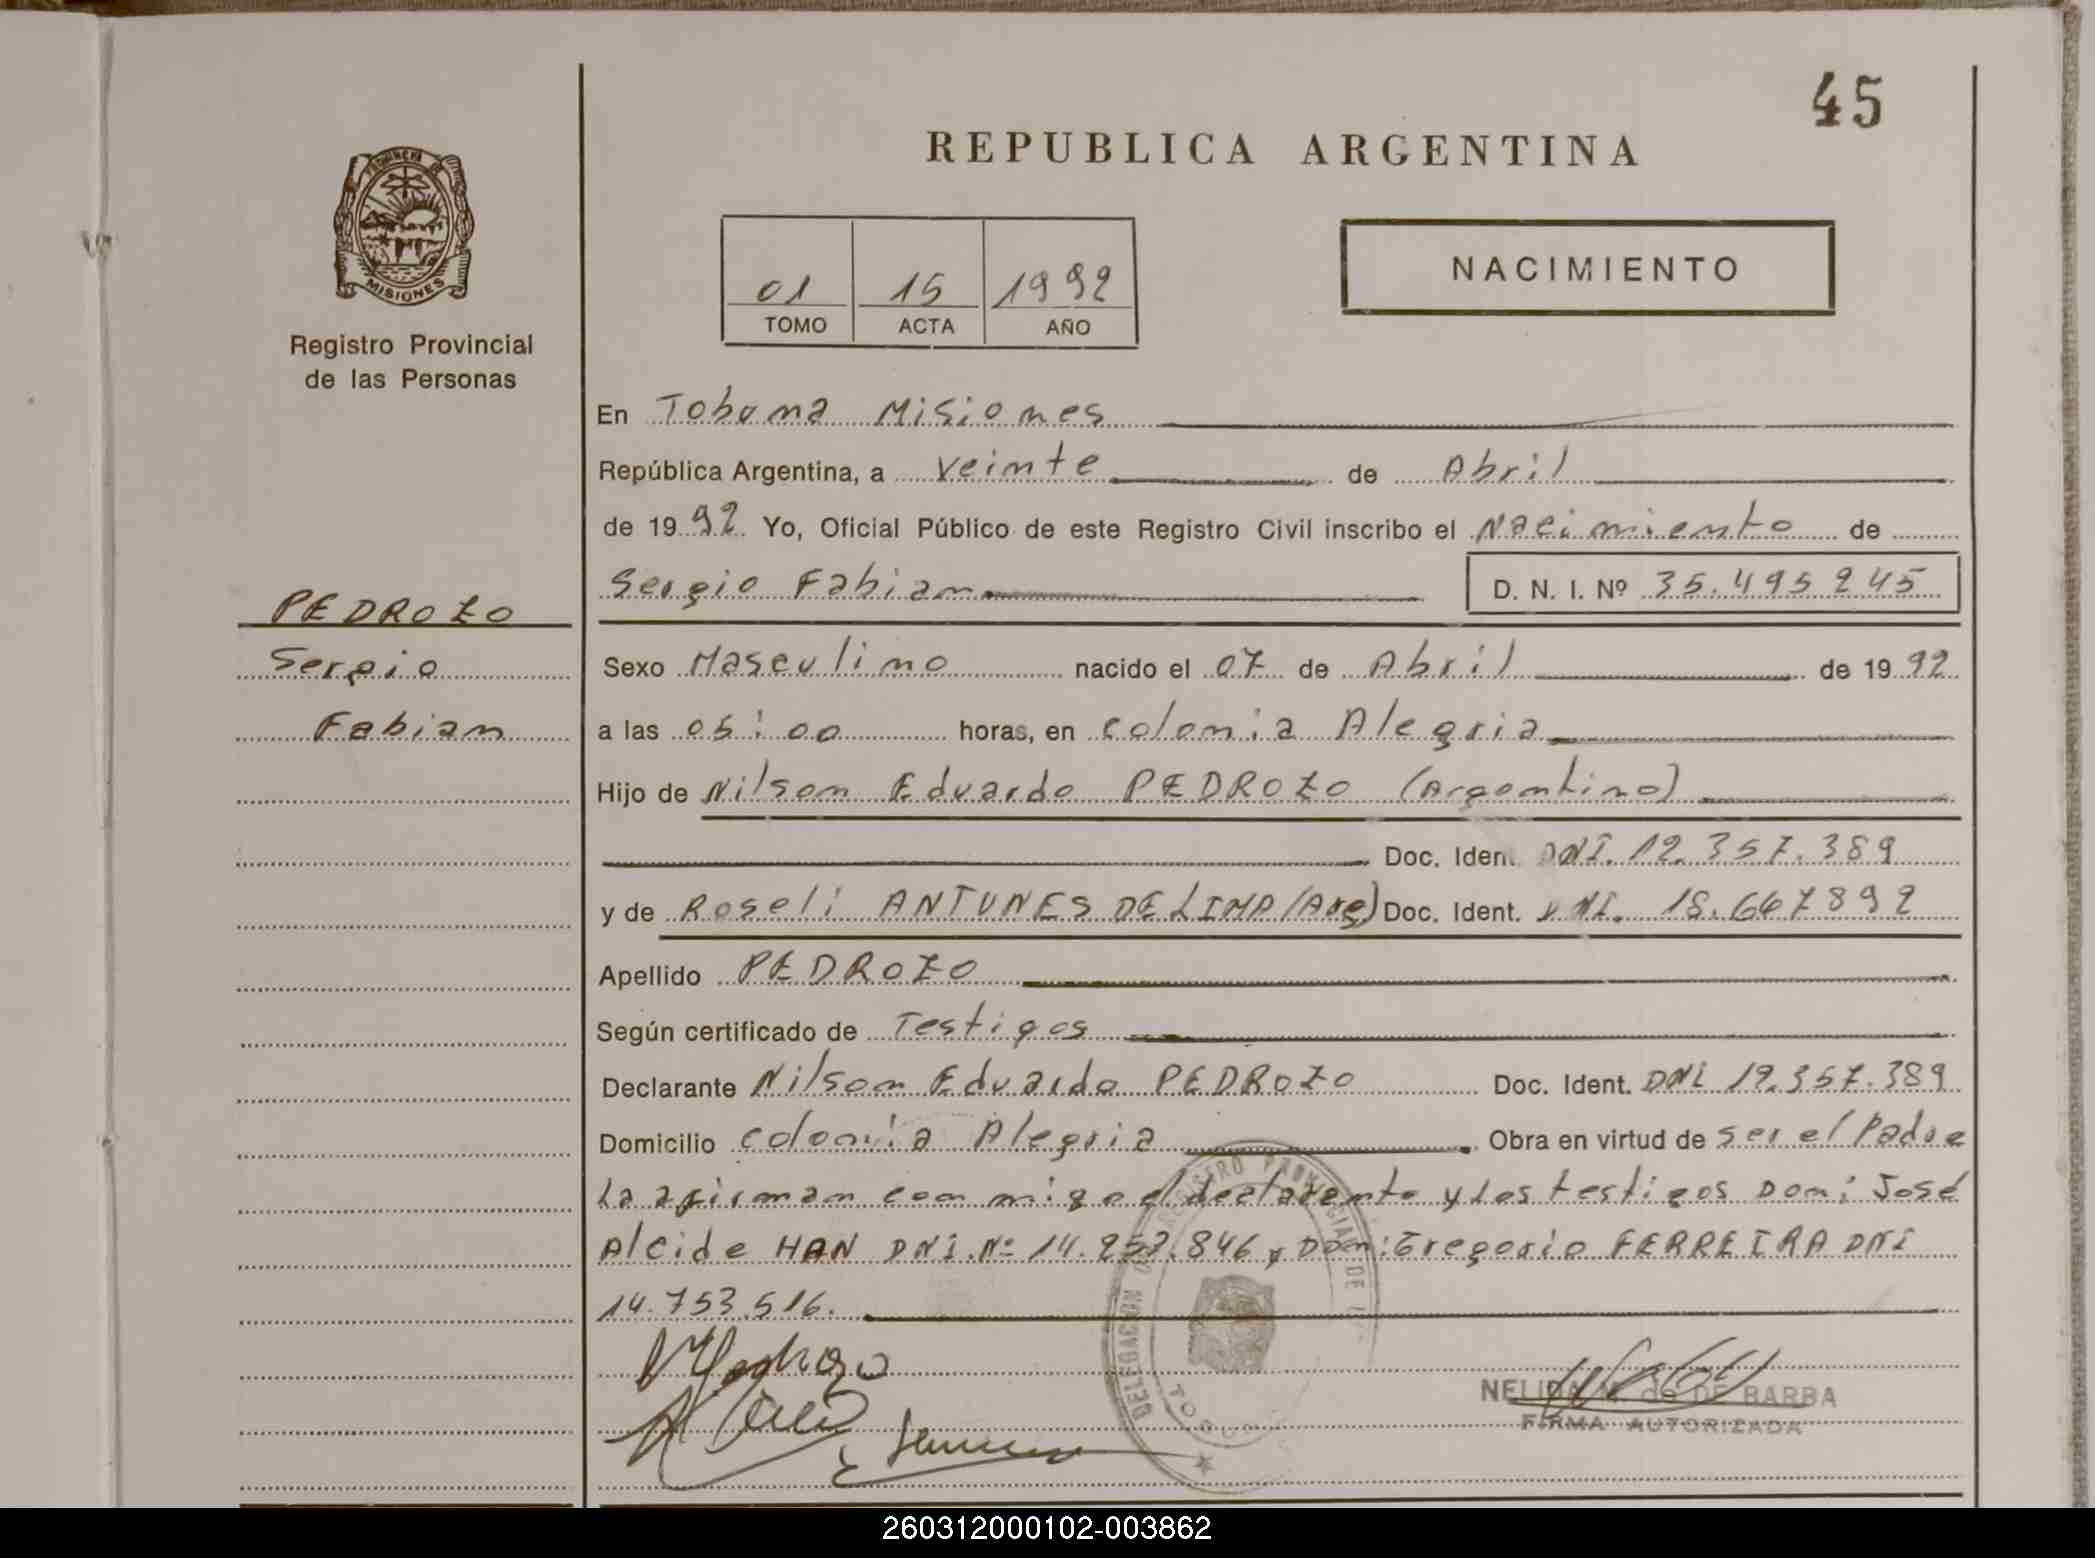 45
REPUBLICA ARGENTINA
PROVINCIA DE
MISIONES
Registro Provincial
de las Personas
01 15 1992
TOMO ACTA AÑO
NACIMIENTO
En Tobuna Misiones
República Argentina, a Veinte de Abril
de 1992 Yo, Oficial Público de este Registro Civil inscribo el Nacimiento de
Sergio Fabian D. N. I. Nº 35.495245
PEDROZO
Sergio
Fabian
Sexo Masculino nacido el 07 de Abril de 1992
a las 05:00 horas, en Colonia Alegria
Hijo de Nilson Eduardo PEDROZO (Argentino)
Doc. Ident. DNI. 12.357.389
y de Roseli ANTUNES DE LIMA (Arg) Doc. Ident. DNI. 18.667892
Apellido PEDROZO
Según certificado de Testigos
Declarante Nilson Eduardo PEDROZO Doc. Ident. DNI 12.357.389
Domicilio Colonia Alegria Obra en virtud de ser el Padre
La afirman con migo el declarante y los testigos Don: José
Alcide HAN DNI. Nº 14.257.846 y Don: Gregorio FERREIRA DNI
14.753.516.
DELEGACION REGISTRO PROVINCIAL DE
NELIDA M. de DE BARBA
FIRMA AUTORIZADA
260312000102-003862